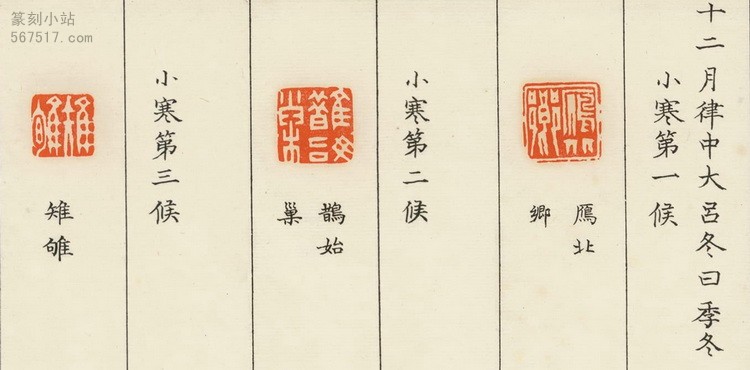 十二月律中大呂冬曰季冬
小寒第一候
鴈北
鄉
小寒第二候
鵲始
巢
小寒第三候
雉雊
篆刻小站
567517.com